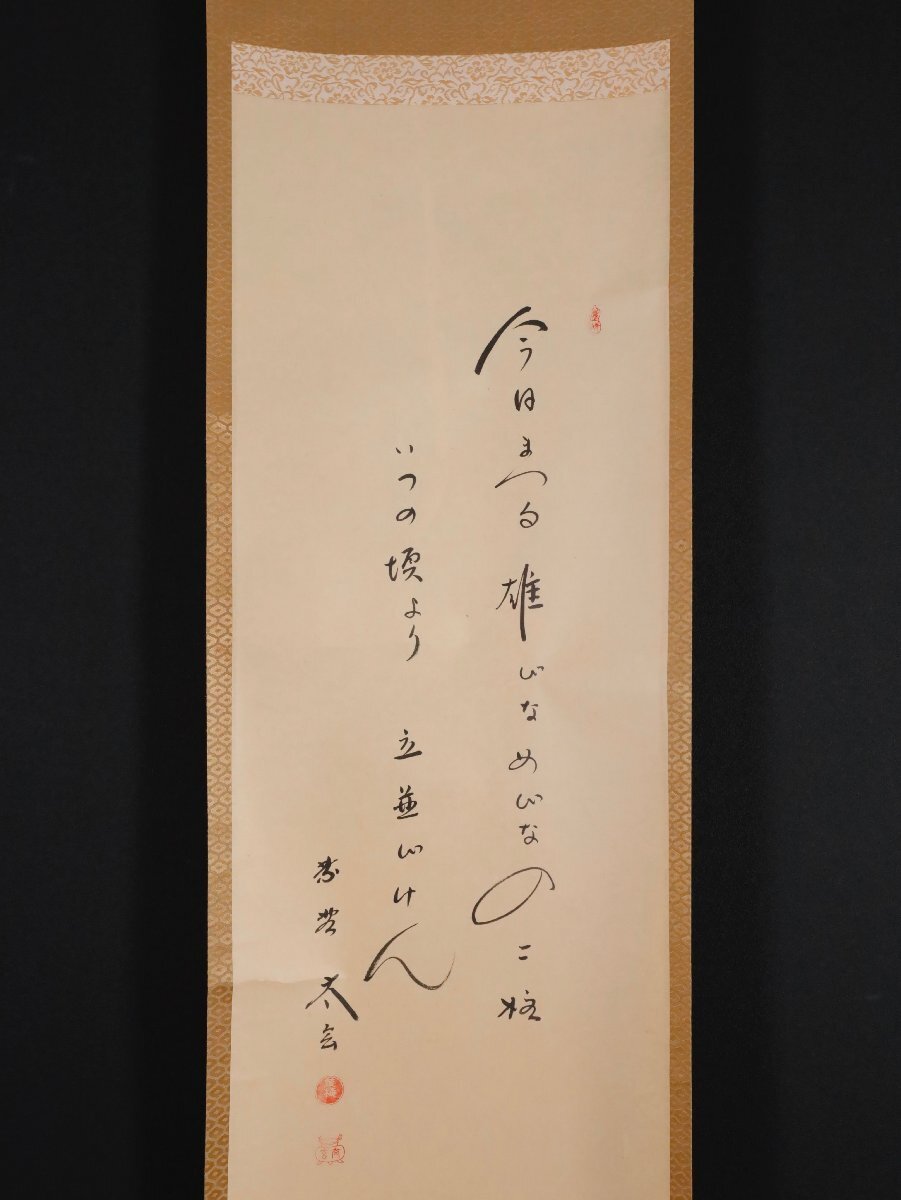 今日まつる雄びなめびなの二柱
いつの頃より立並びけん